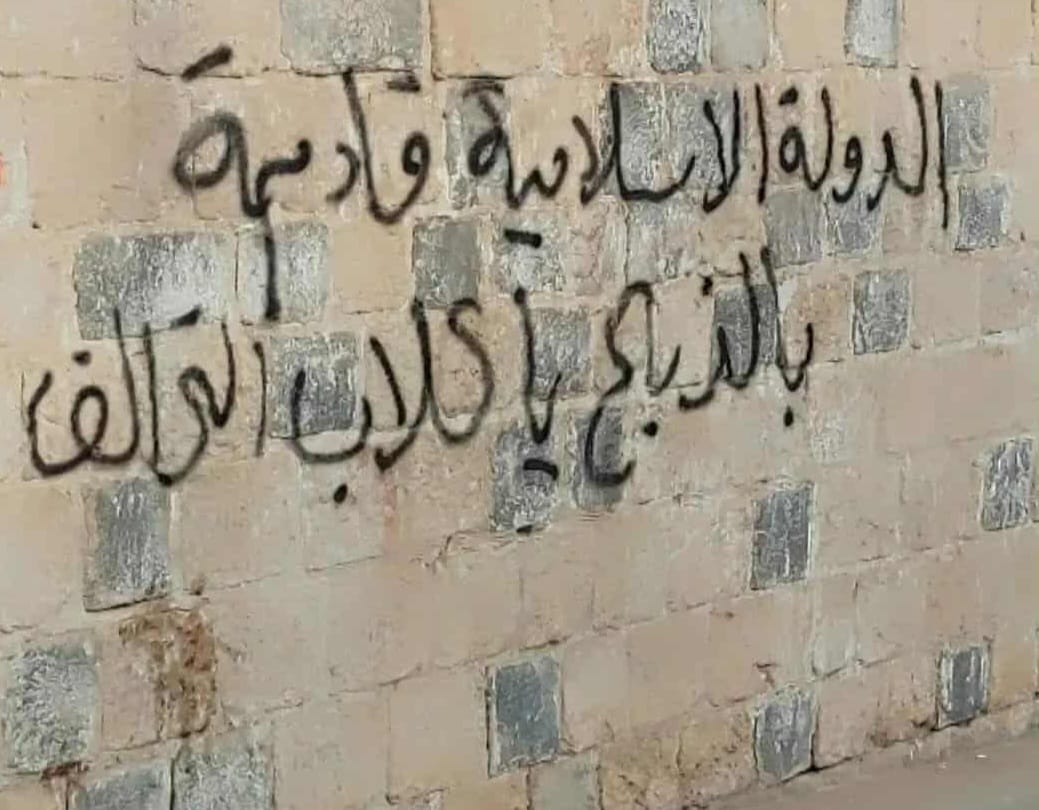 الدولة الاسلامية قادمة
بالذباح يا كلاب التحالف